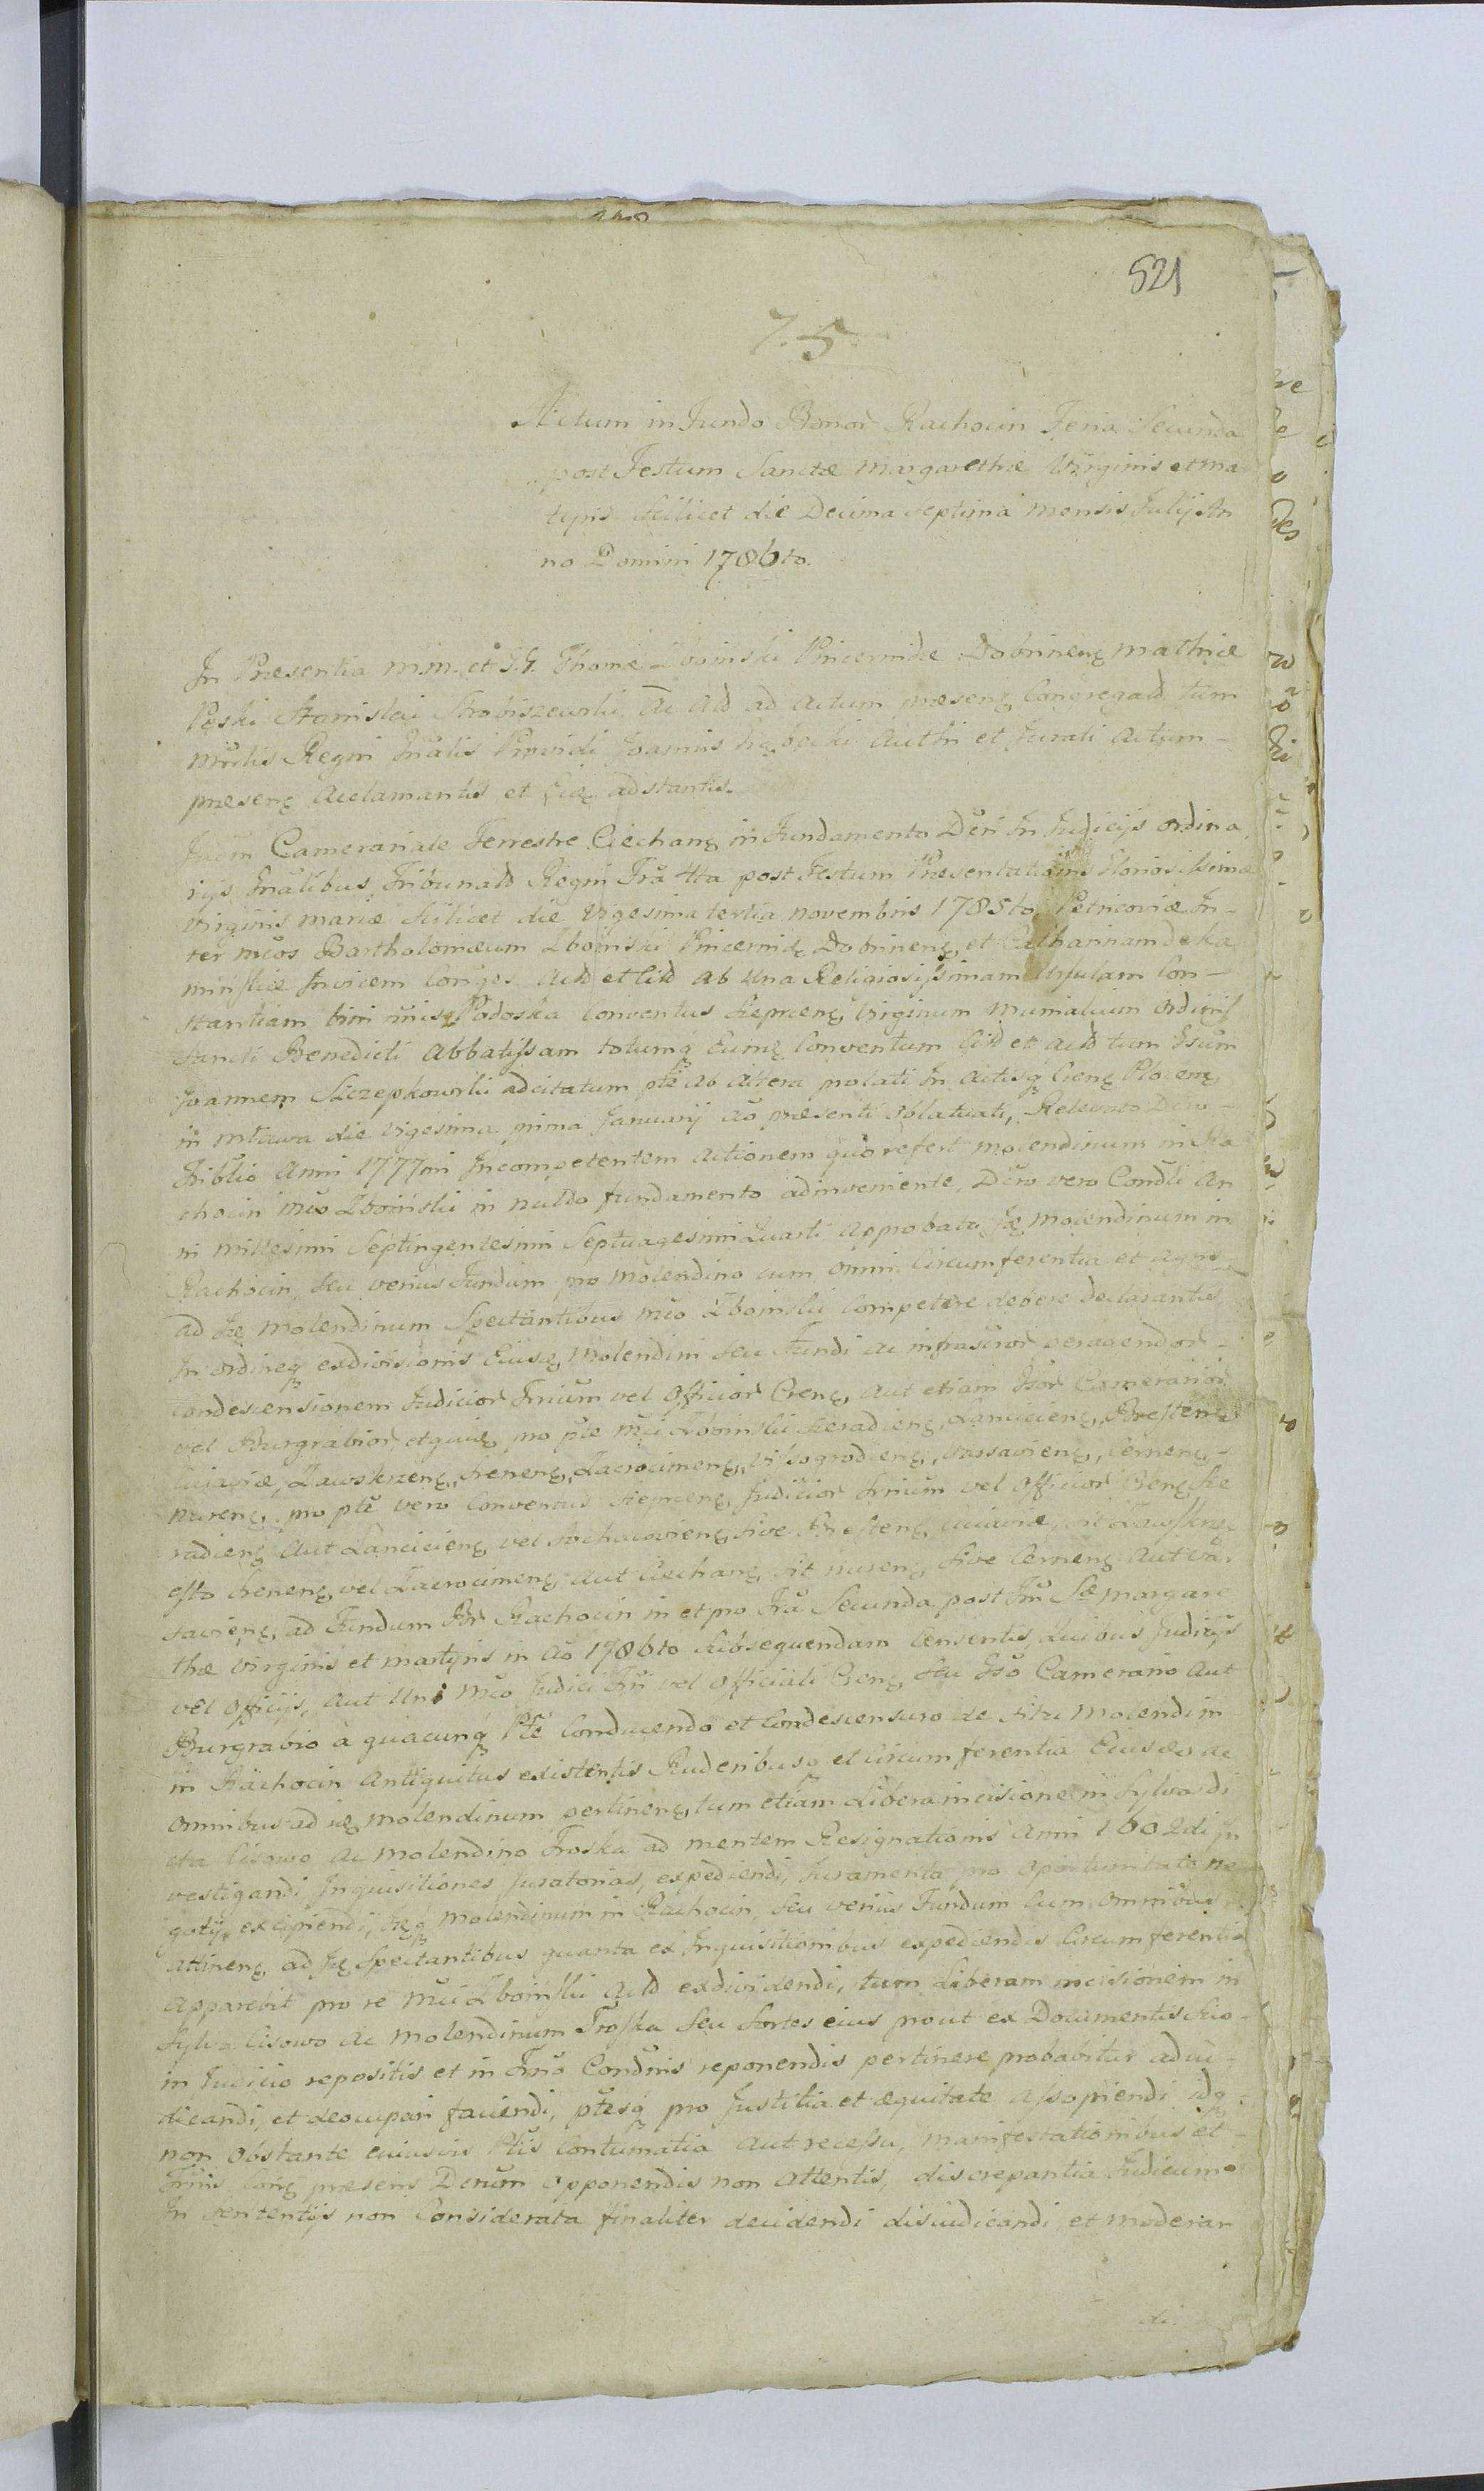 521
7.5
Actum in Fundo Bonor Rachocin Feria Secunda
post Festum Sanctæ Margarethæ Virginis et Mar
tyris scilicet die Decima Septima mensis Julij An
no Domini 1786to.
In Præsentia M.M. et G.G. Thomæ Zboinski Pincernidæ Dobrinens Mathiæ
Pęski Stanislai Strobiszewski Ac Ald ad Actum præsens Congregatd tum
Mrtlis Regni Gnalis Providi Joannis Authn et Jurati Actum
præsens Acclamantis et adstantis.
Camerariale Terrestre Ciechans in Fundamento Dcti In Judicijs Ordina
rijs Gnalibus Tribunald Regni Fra 4ta post Festum Præsentationis Gloriosissimæ
Virginis Mariæ scilicet die Vigesima tertia Novembris 1785to Petricoviæ In
ter Mcos Bartholomæum Zboinski Pincernid Dobrinens et Catharinam de Ka
minskie Invicem Conges Actd et Citd ab Una Religiosissimam Ursulam Con
stantiam Podoska Conventus Sieprcens Virginum Monialium Ordinis
Sancti Benedicti Abbatissam totumq Eund Conventum Citd et Actd tum Gsum
Joannem Szczepkowski adcitatum pte ab Altera prolati In Actisq Crens Plocens
in Mława die Vigesima prima Januarij ao præsenti oblatuati, Relevato Dcto
Triblio Anni 1777mi Incompetentem Actionem quo refert Molendinum in Ra
chocin Mco Zboinski in nullo fundamento adinveniente, Dcto vero Condli An
ni Millesimi Septingentesimi Septuagesimi Quarti Approbato, Molendinum in
Rachocin, seu verius Fundum pro Molendino cum omni Circumferentia et agris
ad Molendinum Spectantibus Mco Zboinski Competere debere declarantis,
In ordineq exdivisionis Molendini seu Fundi ac infrascript peragendor
Condescensionem Judicior Trium vel Officior Crens, aut etiam Gsor Camerarior
vel Burgrabior, pro pte Mci Zboinski Siradiens, Lanciciens, Brestens
Cujaviæ, Zawskrzens, Srenens, Zacrocimens, Vissogrodiens, Varsaviens, Cernens,
Nurens, pro pte vero Conventus Sieprcens Judicior Trium vel Officior Crens Sie
radiens Aut Lanciciens vel Sochacoviens sive Brestens Cujaviæ, sit Zawskrz
esto Srenens vel Zacrocimens Aut Ciechans sit Nurens sive Cernens Aut Var
saviens, ad Fundum Br Rachocin in et pro Fra Secunda post Ftu Sæ Margare
thæ Virginis et Martyris in Ao 1786to subsequendam Censentis, Quibus Judicijs
vel Officijs, Aut Uni Mco Judici Tri vel Officiali Crens seu Gso Camerario aut
Burgrabio à quacunq Pte Conducendo et Condescensuro de situ Molendini
in Rachocin Antiquitus existentis Ruderibusq et Circumferentia Eius ac
omnibus ad id Molendinum pertinens, tum etiam Libera incisione in Sylva di
cta Lisowo ac Molendino Troska ad mentem Resignationis Anni 1602di In
vestigandi, Inquisitiones Juratorias, expediendi, Juramenta pro oportunitate ne
gotij excipiendi, Molendinum in Rachocin, seu verius Fundum cum omnibus
attinens ad Spectantibus quanta ex Inquisitionibus expediendis Circumferentia
apparebit pro re Mci Zboinski Actd exdividendi, tum Liberam incisionem in
Sylva Lisowo ac Molendinum Troska seu sortes eius prout ex Documentis suo
in Judicio repositis et in Tno Condnis reponendis pertinere probabitur adju
dicandi et deoccupari faciendi, ptesq pro Justitia et æquitate assopiendi idq
non obstante cuiusvis Ptis Contumatia Aut recessu, Manifestationibus et
præsens Dcrum opponendis non attentis, discrepantia Judicum
In sententijs non Considerata finaliter decidendi disiudicandi et moderan
di.